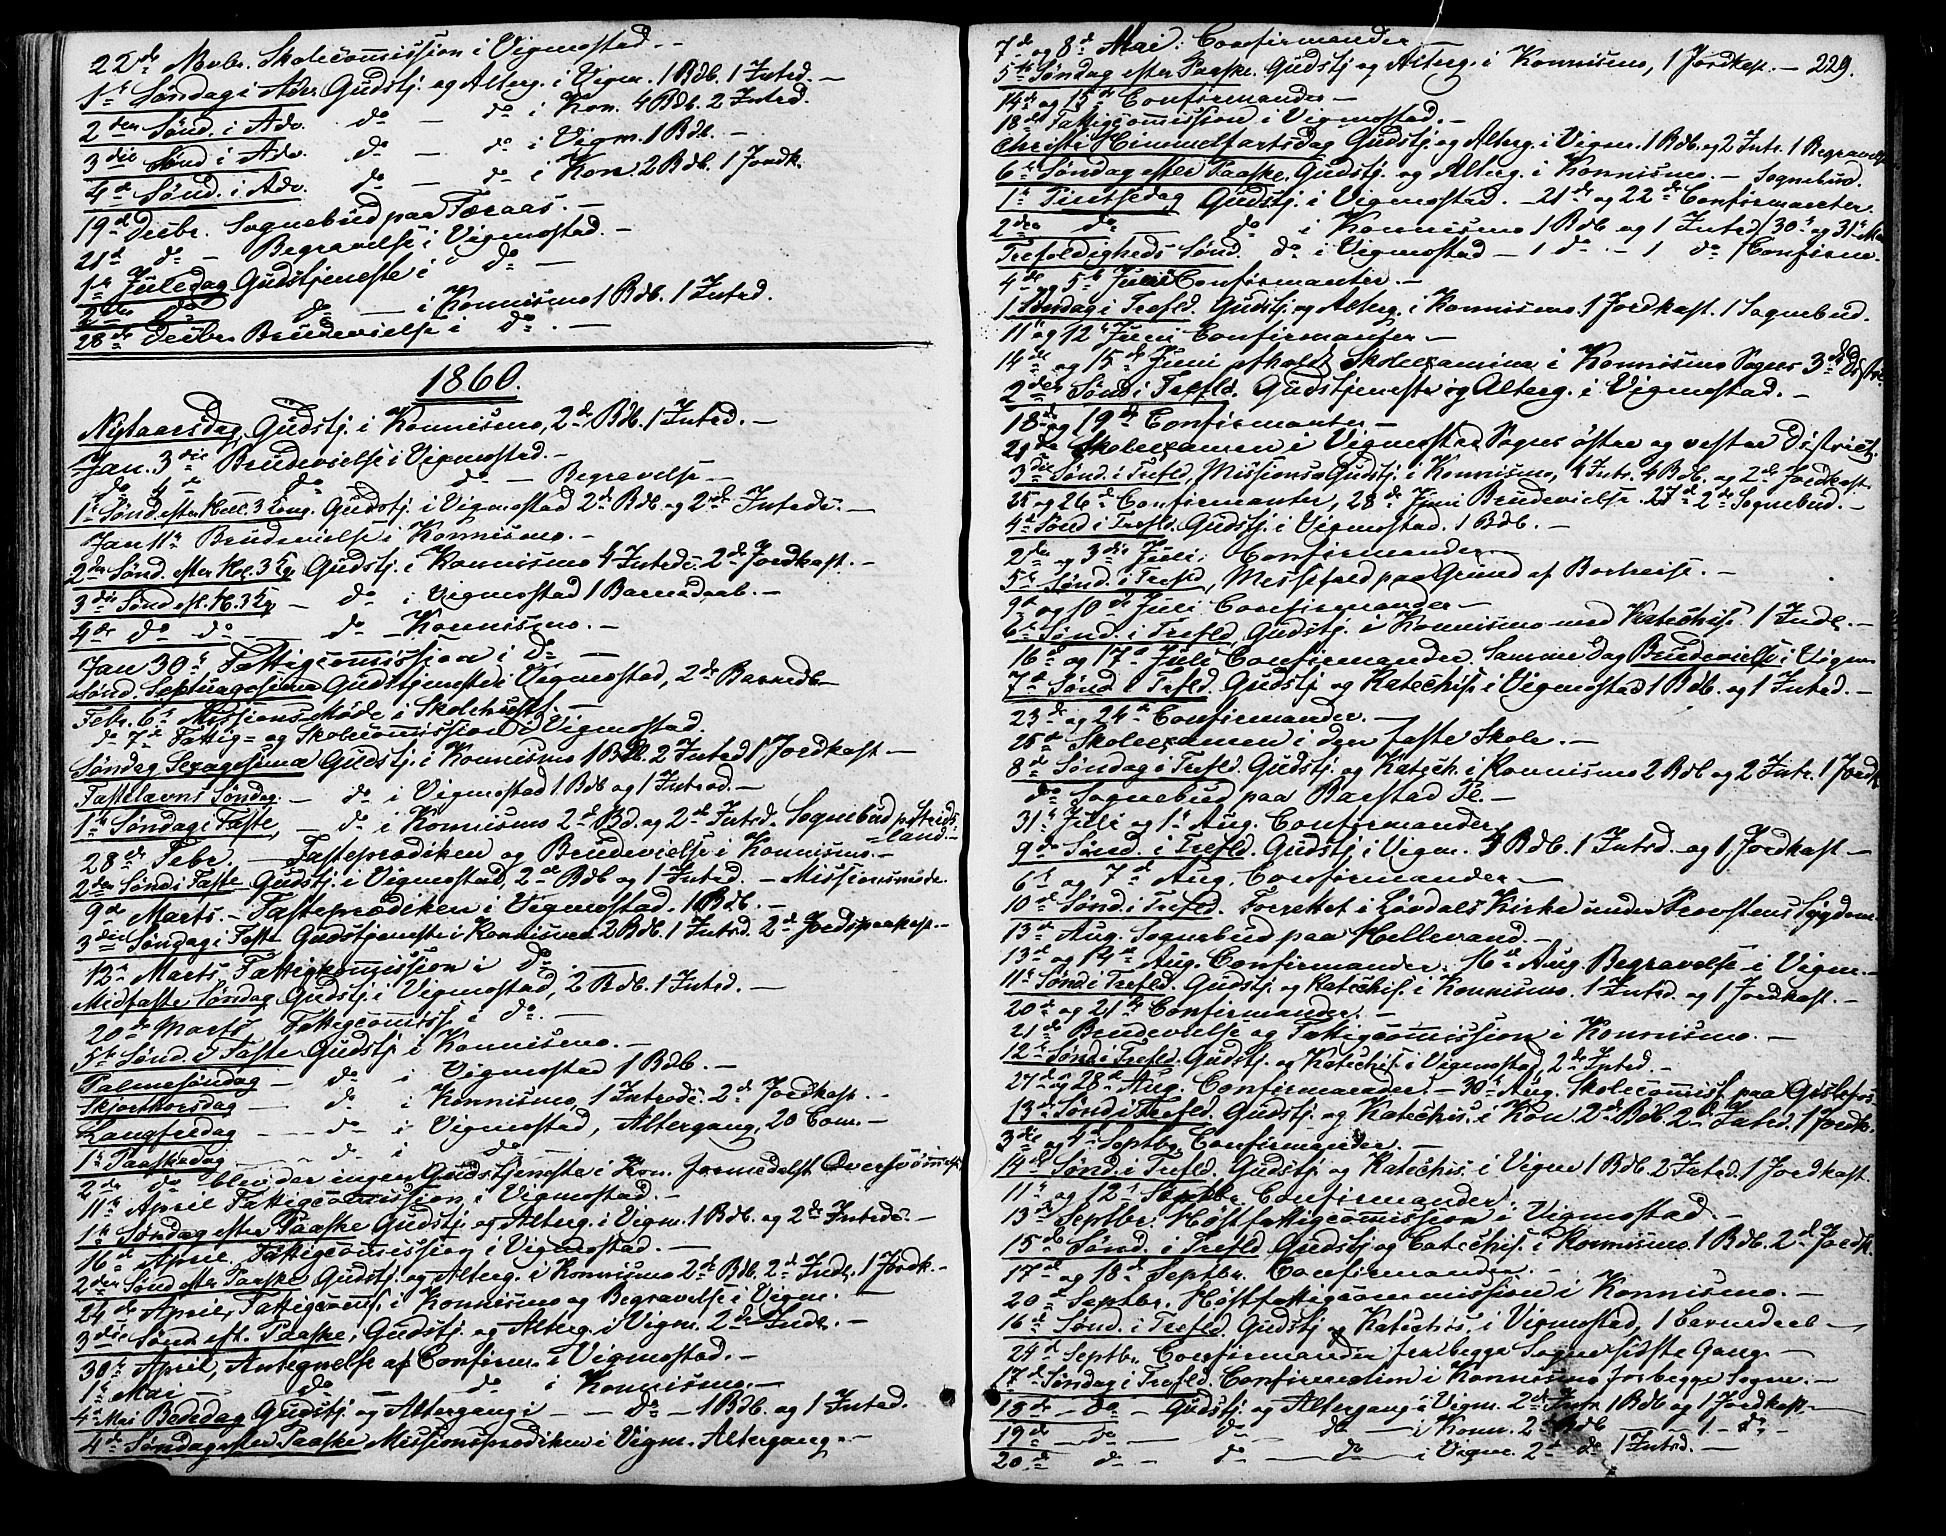 22de Novbr. Skolecomission i Vigmostad. -
1te Søndag i Adv. Gudstj. og Alterg. i Vigm. 1 Bdb. 1 Intrd. -
2den Sønd. i Adv. do - do i Kon. 4 Bdb. 2 Intrd.
3die Sønd i Adv. do - do i Vigm. 1 Bdb. -
4de Sønd. i Adv. do - do i Kon 2 Bdb. 1 Jordk.
19de Decbr. Sognebud paa -
21de do - Begravelse i Vigmostad. -
1te Juledag Gudstjeneste i do -
2den do do - i Konnismo 1 Bdb. 1 Intrd.
28de Decbr. Brudevielse i do. -
1860.
Nytaarsdag, Gudstj. i Konnismo, 2de Bdb. 1 Intrd. -
Jan. 3die Brudevielse i Vigmostad. -
do 4de do do - Begravelse -
1te Sønd. efter Hell. 3 Kong. Gudstj. i Vigmostad 2de Bdb. og 2de Intrde. -
Jan 11te Brudevielse i Konnismo. -
2den Sønd. efter Hel. 3 Kg. Gudstj. i Konnismo 4 Intrde. 2de Jordkast. -
3die Sønd eft. H. 3 Kg - do i Vigmostad 1 Barnedaab. -
4de do do - do - Konnismo. -
Jan 30te Fattigcomission i do -
Sønd. Septuagesima Gudstjeneste i Vigmostad, 2de Barnedb -
Febr. 6te Missionsmøde i Skolehuset. -
do 7de Fattig= og Skolecomission i Vigmostad.
Søndag Sexagesima Gudstj. i Konnismo 1 Bdb. 2 Intrd 1 Jordkast -
Fastelavns Søndag. - do i Vigmostad 1 Bdb og 1 Introd. -
1te Søndag i Faste, - do i Konnismo 2de Bd. og 2de Intrd. Sognebud
=land. -
28de Febr. - Fasteprædiken og Brudevielse i Konnismo. -
2den Sønd i Faste Gudstj. i Vigmostad, 2de Bdb og 1 Intrd. - Missionsmøde.
9de Marts. - Fasteprædiken i Vigmostad. 1 Bdb. -
3die Søndag i Faste Gudstjeneste i Konnismo 2 Bdb. 1 Intrd. 2de Jordspaakast. -
12te Marts. Fattigkomission i do. -
Midfaste Søndag, Gudstj. i Vigmostad, 2 Bdb. 1 Intrd. -
20de Marts Fattigcomiss. i do. -
5te Sønd. i Faste Gudstj i Konnismo. -
Palmesøndag - do i Vigmostad 1 Bdb. -
Skjærthorsdag - do i Konnismo, 1 Introde. 2de Jordkast. -
Langfredag - do i Vigmostad, Altergang, 20 Com. -
1te Paaskedag - do i do -
2den do blev der ingen Gudstjeneste i Kon. formedelst Oversvømmelse
11te April Fattigcomission i Vigmostad. -
1te Søndag efter Paaske Gudstj og Alterg. i Vigm. 1 Bdb. og 2de Intrde. -
16de April, Fattigcomission i Vigmostad. -
2den Sønd efter Paaske Gudstj. og Alterg. i Konnismo 2de Bdb. 2de Indl. 1 Jordk. -
24de April, Fattigcomis. i Konnismo og Begravelse i Vigm. -
3die Sønd. eft. Paaske, Gudstj. og Alterg. i Vigm. 2de Indl. -
30te April, Antegnelse af Confirm. i Vigmostad. -
1te Mai do - do i Konnismo. -
4de Mai Bededag Gudstj. og Altergang i - do - 1 Bdb. og 1 Intrd.
4de Søndag efter Paaske Missionsprædiken i Vigm. Altergang. -
7de og 8de Mai. Confirmander -
229.
5te Søndag efter Paaske. Gudstj og Alterg. i Konnismo, 1 Jordkast. -
14de og 15de Confirmander -
18de Fattigcomission i Vigmostad. -
Christi Himmelfartsdag Gudstj og Alterg. i Vigm. 1 Bdb. og 2 Intr. 1 Begravelse
6te Søndag efter Paaske. Gudstj. og Alterg. i Konnismo. - Sognebud.
1te Pintsedag Gudstj. i Vigmostad. - 21de og 22de Confirmanter.
2den do do i Konnismo 1 Bdb og 1 Intrd. / 30te og 31te Mai
Trefoldigheds Sønd. do i Vigmostad - 1 do - 1 do / Confirm.
4de og 5te Juni Confirmanter. -
1 Søndag i Trefld. Gudstj. og Alterg. i Konnismo. 1 Jordkast. 1 Sognebud.
11te og 12te Juni Confirmanter -
14de og 15de Juni afholdt Skoleexamina i Konnismo Sogns 3de Distr.
2den Sønd i Trefld. Gudstjeneste og Alterg. i Vigmostad. -
18de og 19de Confirmanter -
29de Skoleexamen i Vigmostad Sogns østre og vestre District.
3die Sønd. i Trefld, Missions Gudstj. i Konnismo, 4 Intr. 4 Bdb. og 2de Jordkast
25 og 26de Confirmanter, 28de Juni Brudevielse. 27de 2de Sognebud. -
4de Sønd i Trefld. Gudstj. i Vigmostad. 1 Bdb. -
2den og 3die Juli, Confirmander -
5te Sønd. i Trefld, Messefald paa Grund af Bortreise. -
9de og 10de Juli Confirmander -
6te Sønd. i Trefld. Gudstj. i Konnismo med Katechis. 1 Indl. -
16de og 17de Juli Confirmander. Samme Dag Brudevielse i Vigm
7de Sønd i Trefld. Gudstj og Katechis. i Vigmostad 1 Bdb. og 1 Intrd. -
23de og 24de Confirmander. -
25de Skoleexamen i den faste Skole. -
8de Søndag i Trefld. Gudstj og Katech. i Konnismo 2 Bdb og 2 Intr. 1 Jordk.
do Sognebud paa Barstad Ø. -
31te Juli og 1te Aug. Confirmander
9de Sønd. i Trefld. Gudstj i Vigm. 4 Bdb. 1 Intrd. og 1 Jordkast -
6te og 7de Aug. Confirmander -
10de Sønd. i Trefld. Forrettet i Løvdals Kirke under Provstens Sygdom.
13de Aug. Sognebud paa Hellevand. -
13de og 14de Aug. Confirmander. 16de Aug Begravelse i Vigm. -
11te Sønd i Trefld. Gudstj og Katechis. i Konnismo. 1 Intrd. og 1 Jordkast. -
20de og 21de Confirmander. -
21de Brudevielse og Fattigcomission i Konnismo. -
12te Sønd i Trefld. Gudstj. og Katechis. i Vigmostad, 2de Intrd. -
27de og 28de Aug. Confirmander. - 30te Aug. Skolecomiss. paa Gislefos
13de Sønd i Trefld. Gudstj og Katechis. i Kon. 2de Bdb. 2de Intrd. 1 Jordk.
3die og 4de Septbr. Confirmander. -
14de Sønd. i Trefld. Gudstj og Katechis. i Vigm 1 Bdb. 2 Intrd. 1 Jordkast.
11te og 12te Septbr. Confirmander.
13de Septbr. Høstfattigcomission i Vigmostad. -
15de Sønd. i Trefld Gudstj og Catechis. i Konnismo. 1 Bdb. 2de Jordk.
17de og 18de Septbr. Confirmander. -
20de Septbr. Høstfattigcommission i Konnismo. -
16de Sønd. i Trefld. Gudstj og Katechis. i Vigmostad, 1 Barnedaab -
24de Septbr. Confirmander fra begge Sogne sidste Gang. -
17de Søndag i Trefld. Confirmation i Konnismo for begge Sogne. -
18de - do - Gudstj. og Altergang i Vigm. 2de Intr. 1 Bdb og 1 Jordkast. -
19de - do - do - do - i Konn. 2de Bdb - 1 - do -
20de do - do - do - i Vigm. 2de do 1 Intrd. -